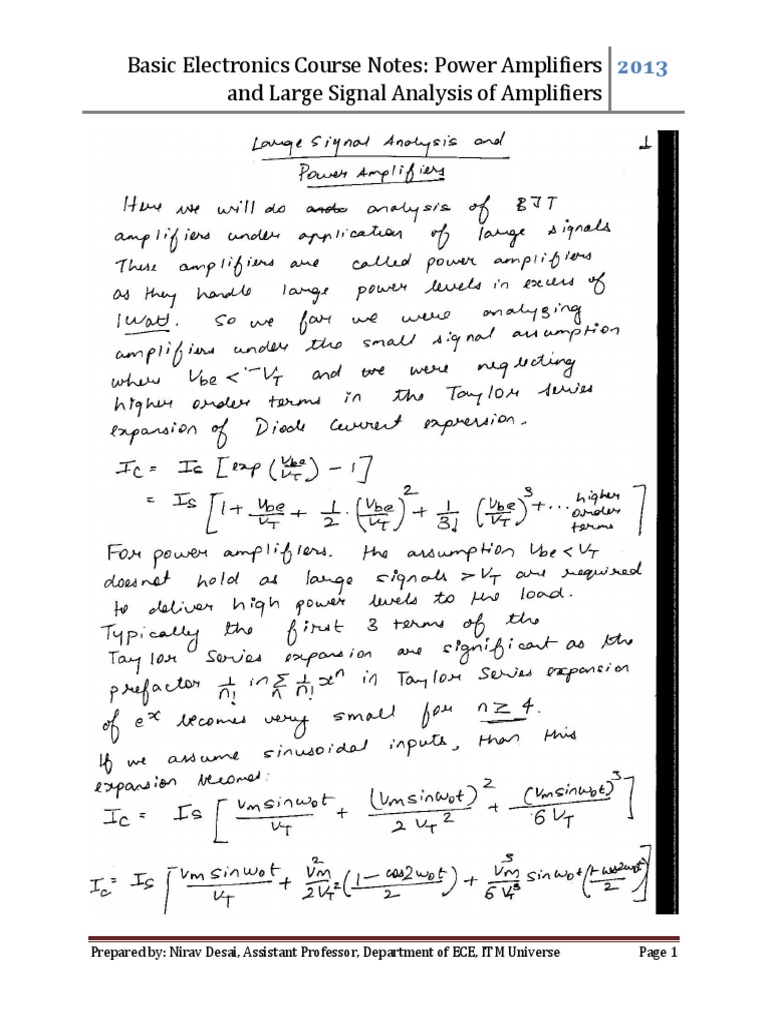 Basic Electronics Course Notes: Power Amplifiers
and Large Signal Analysis of Amplifiers
2013
Large Signal Analysis and
Power Amplifiers
1
Here we will do analysis of BJT
amplifiers under application of large signals
These amplifiers are called power amplifiers
as they handle large power levels in excess of
1Watt. So we far we were analyzing
amplifiers under the small signal assumption
where Vbe < ~VT and we were neglecting
higher order terms in the Taylor series
expansion of Diode Current expression.
IC = IS [exp(Vbe/VT) - 1]
= IS [1 + Vbe/VT + 1/2 · (Vbe/VT)^2 + 1/3! (Vbe/VT)^3 + ... higher order terms]
For power amplifiers. the assumption Vbe < VT
doesnot hold as large signals > VT are required
to deliver high power levels to the load.
Typically the first 3 terms of the
Taylor Series expansion are significant as the
prefactor 1/n! in Σn 1/n! x^n in Taylor Series expansion
of e^x becomes very small for n ≥ 4.
If we assume sinusoidal inputs, than this
expansion becomes:
IC = IS [Vm sinω0t/VT + (Vm sinω0t)^2/2VT^2 + (Vm sinω0t)^3/6VT]
Ic = IS [Vm sinω0t/VT + Vm^2/2VT^2 (1 - cos2ω0t)/2 + Vm^3/6VT^3 sinω0t (1 - cos2ω0t/2)]
Prepared by: Nirav Desai, Assistant Professor, Department of ECE, ITM Universe
Page 1